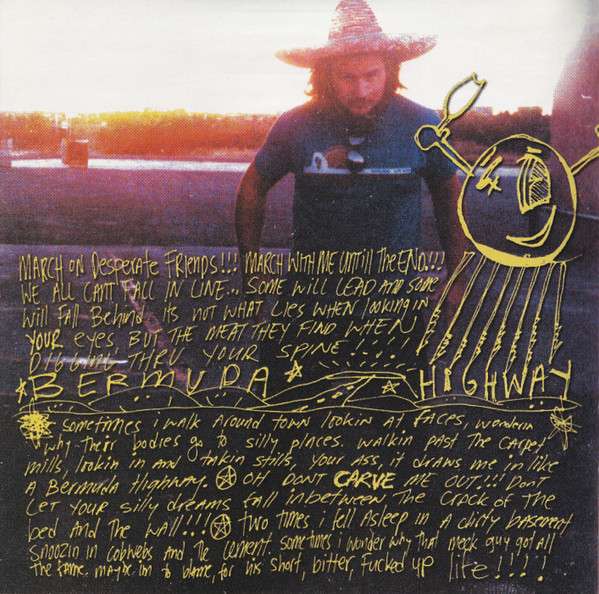 MARCH ON Desperate FRIENDS!!! MARCH WITH ME UNTILL The END!!!
WE ALL CANT FALL IN LINE... SOME WILL LEAD AND SOME
Will FALL BEHIND. ITS NOT WHAT LIES WHEN LOOKING IN
YOUR EYES, BUT THE MEAT THEY FIND WHEN
DIGGING THRU YOUR SPINE!!!!
BERMUDA HIGHWAY
sometimes i walk Around town lookin AT FACES, wonderin
why their bodies go to silly places. walkin past the carpet
mills, lookin in and takin stills, your ass, it draws me in like
A Bermuda Highway. OH DONT CARVE ME OUT!!! DONT
LET YOUR silly dreams fall inbetween the Crack OF THE
bed and The WALL!!! two times i fell Asleep in A dirty basement
snoozin in cobwebs and The cement. sometimes i wonder why that neck guy got all
The fame. maybe im to blame, for his short, bitter, fucked up life!!!!